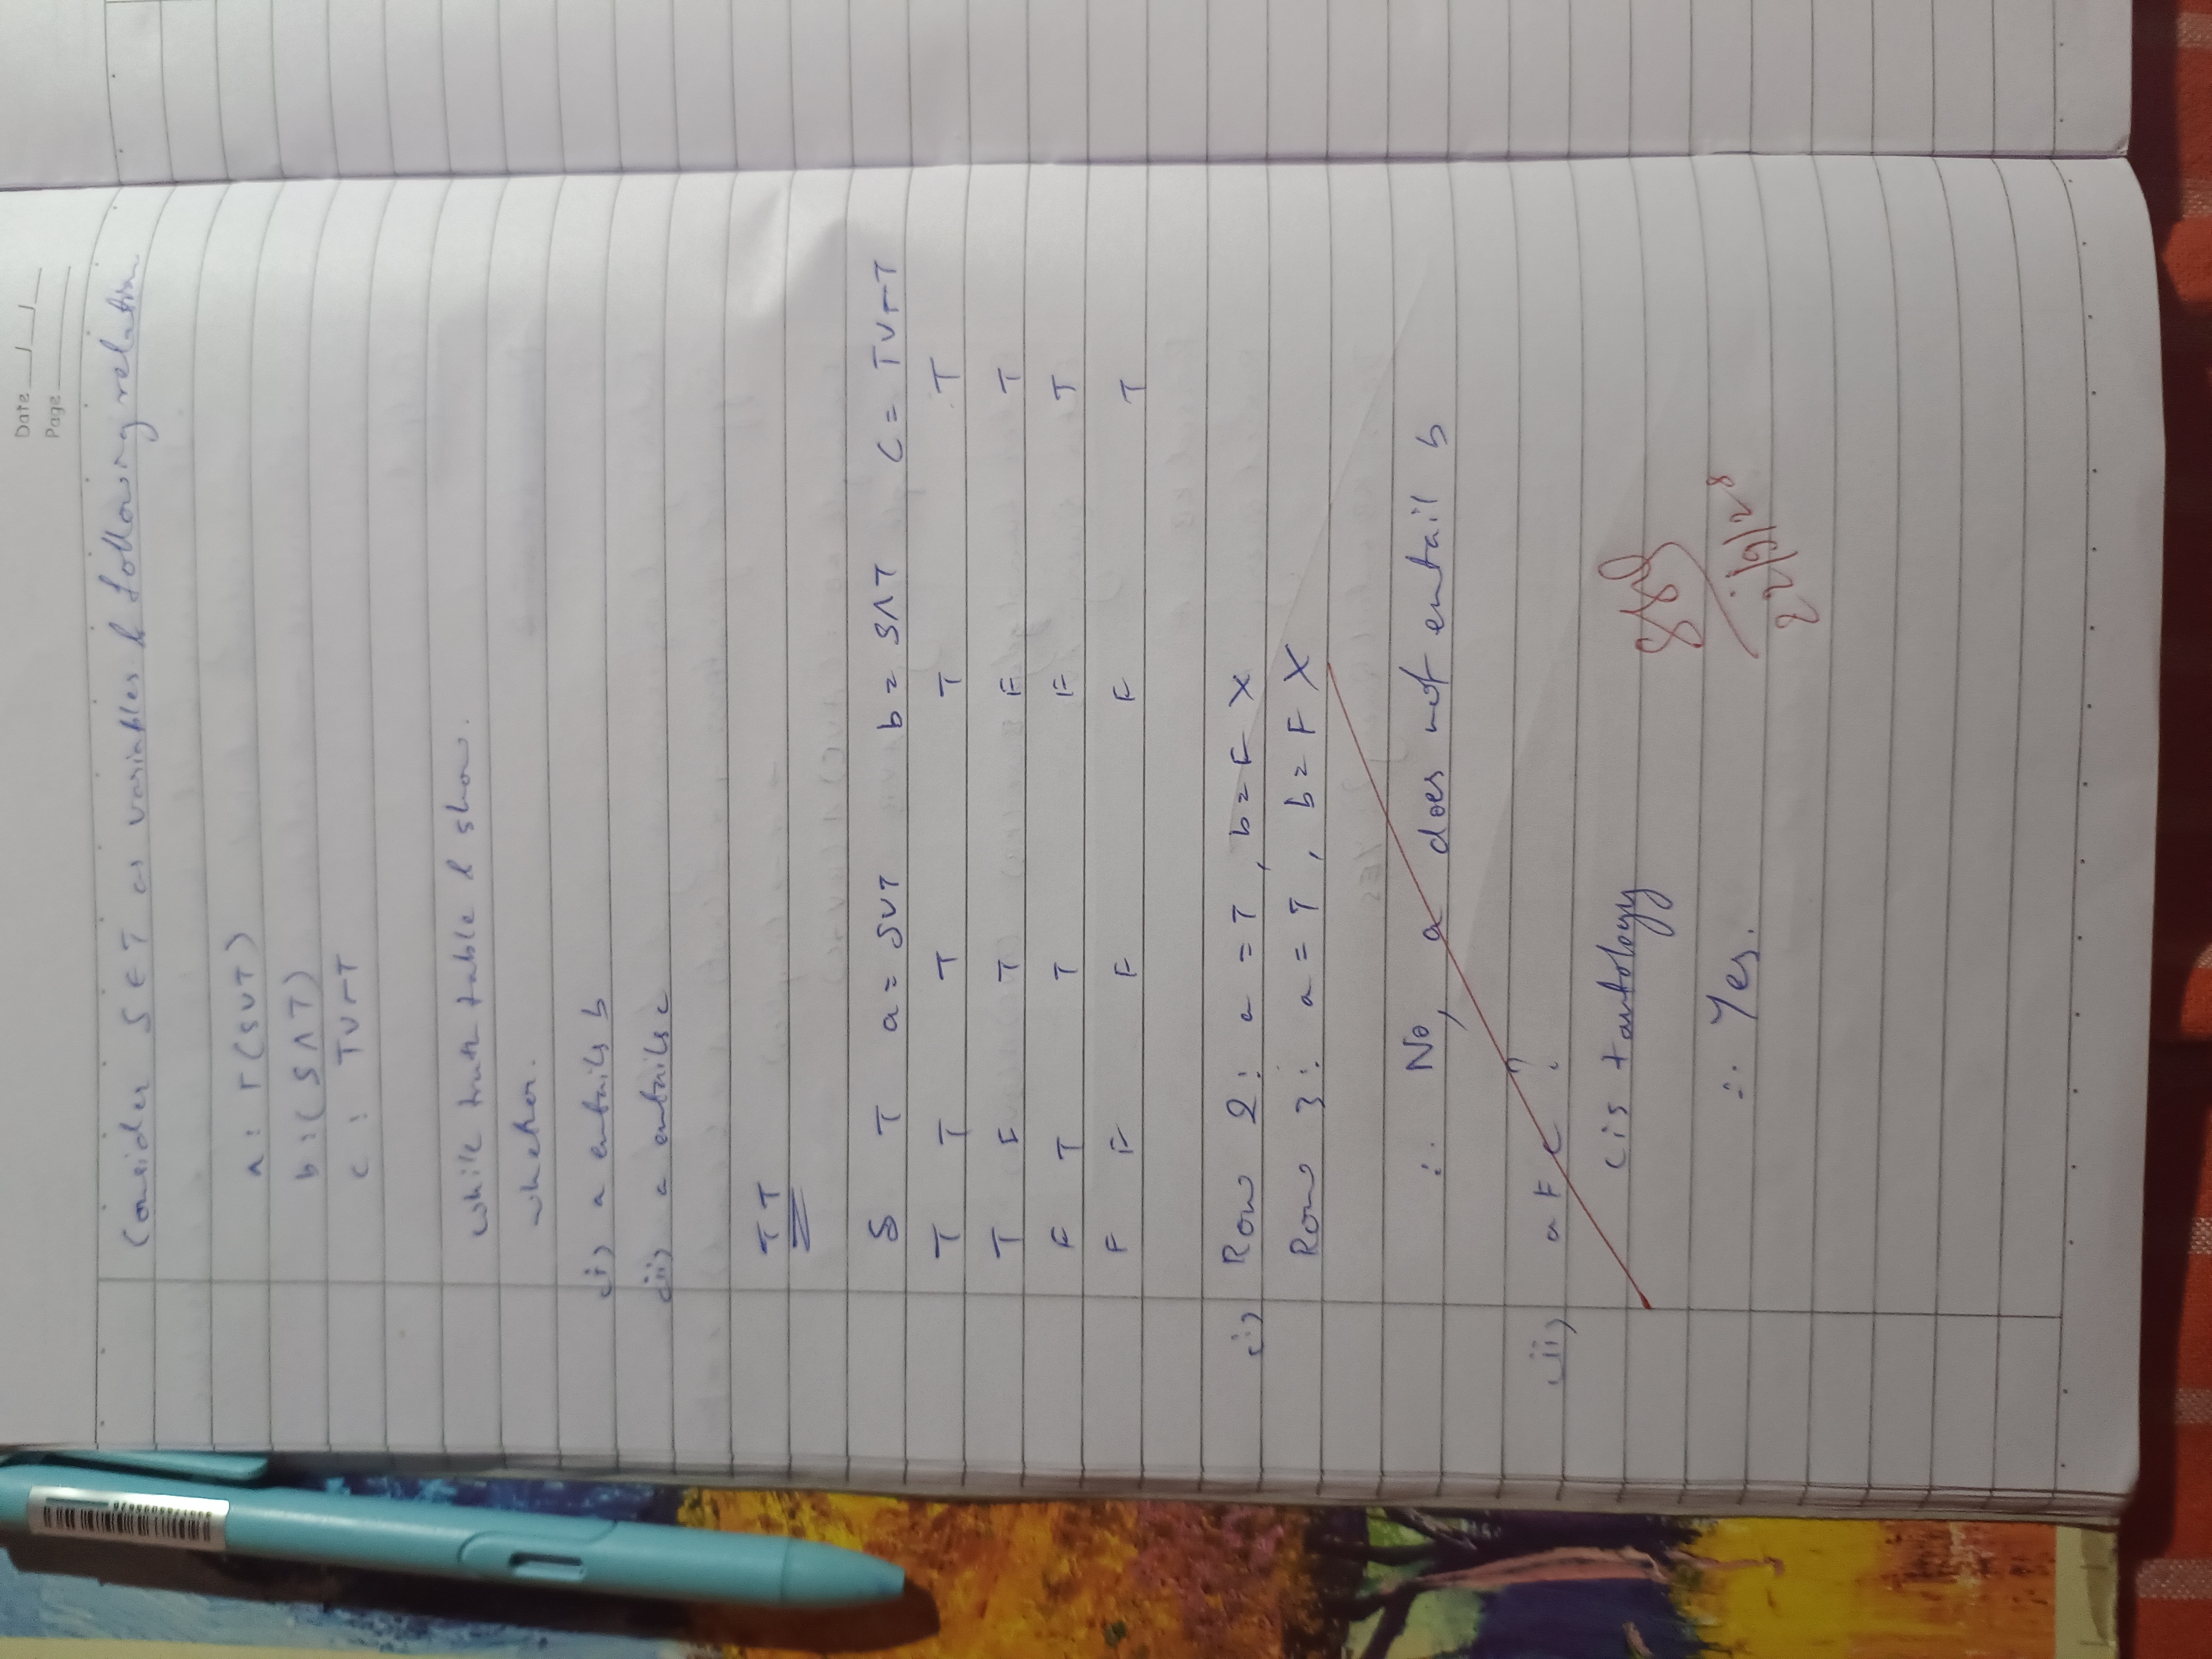 Date
Page
Consider S & T as variables & following relation
a : ¬(S∨T)
b : (S∧T)
c : T∨¬T
while truth table & show.
whether.
(i) a entails b
(ii) a entails c
TT
S T a = S∨T b = S∧T C = T∨¬T
T T T T T
T F T F T
F T T F T
F F F F T
(i) Row 2: a = T, b = F X
Row 3: a = T, b = F X
∴ No, a does not entail b
(ii) a ⊨ c ?
c is tautology
∴ Yes.
22/9/25